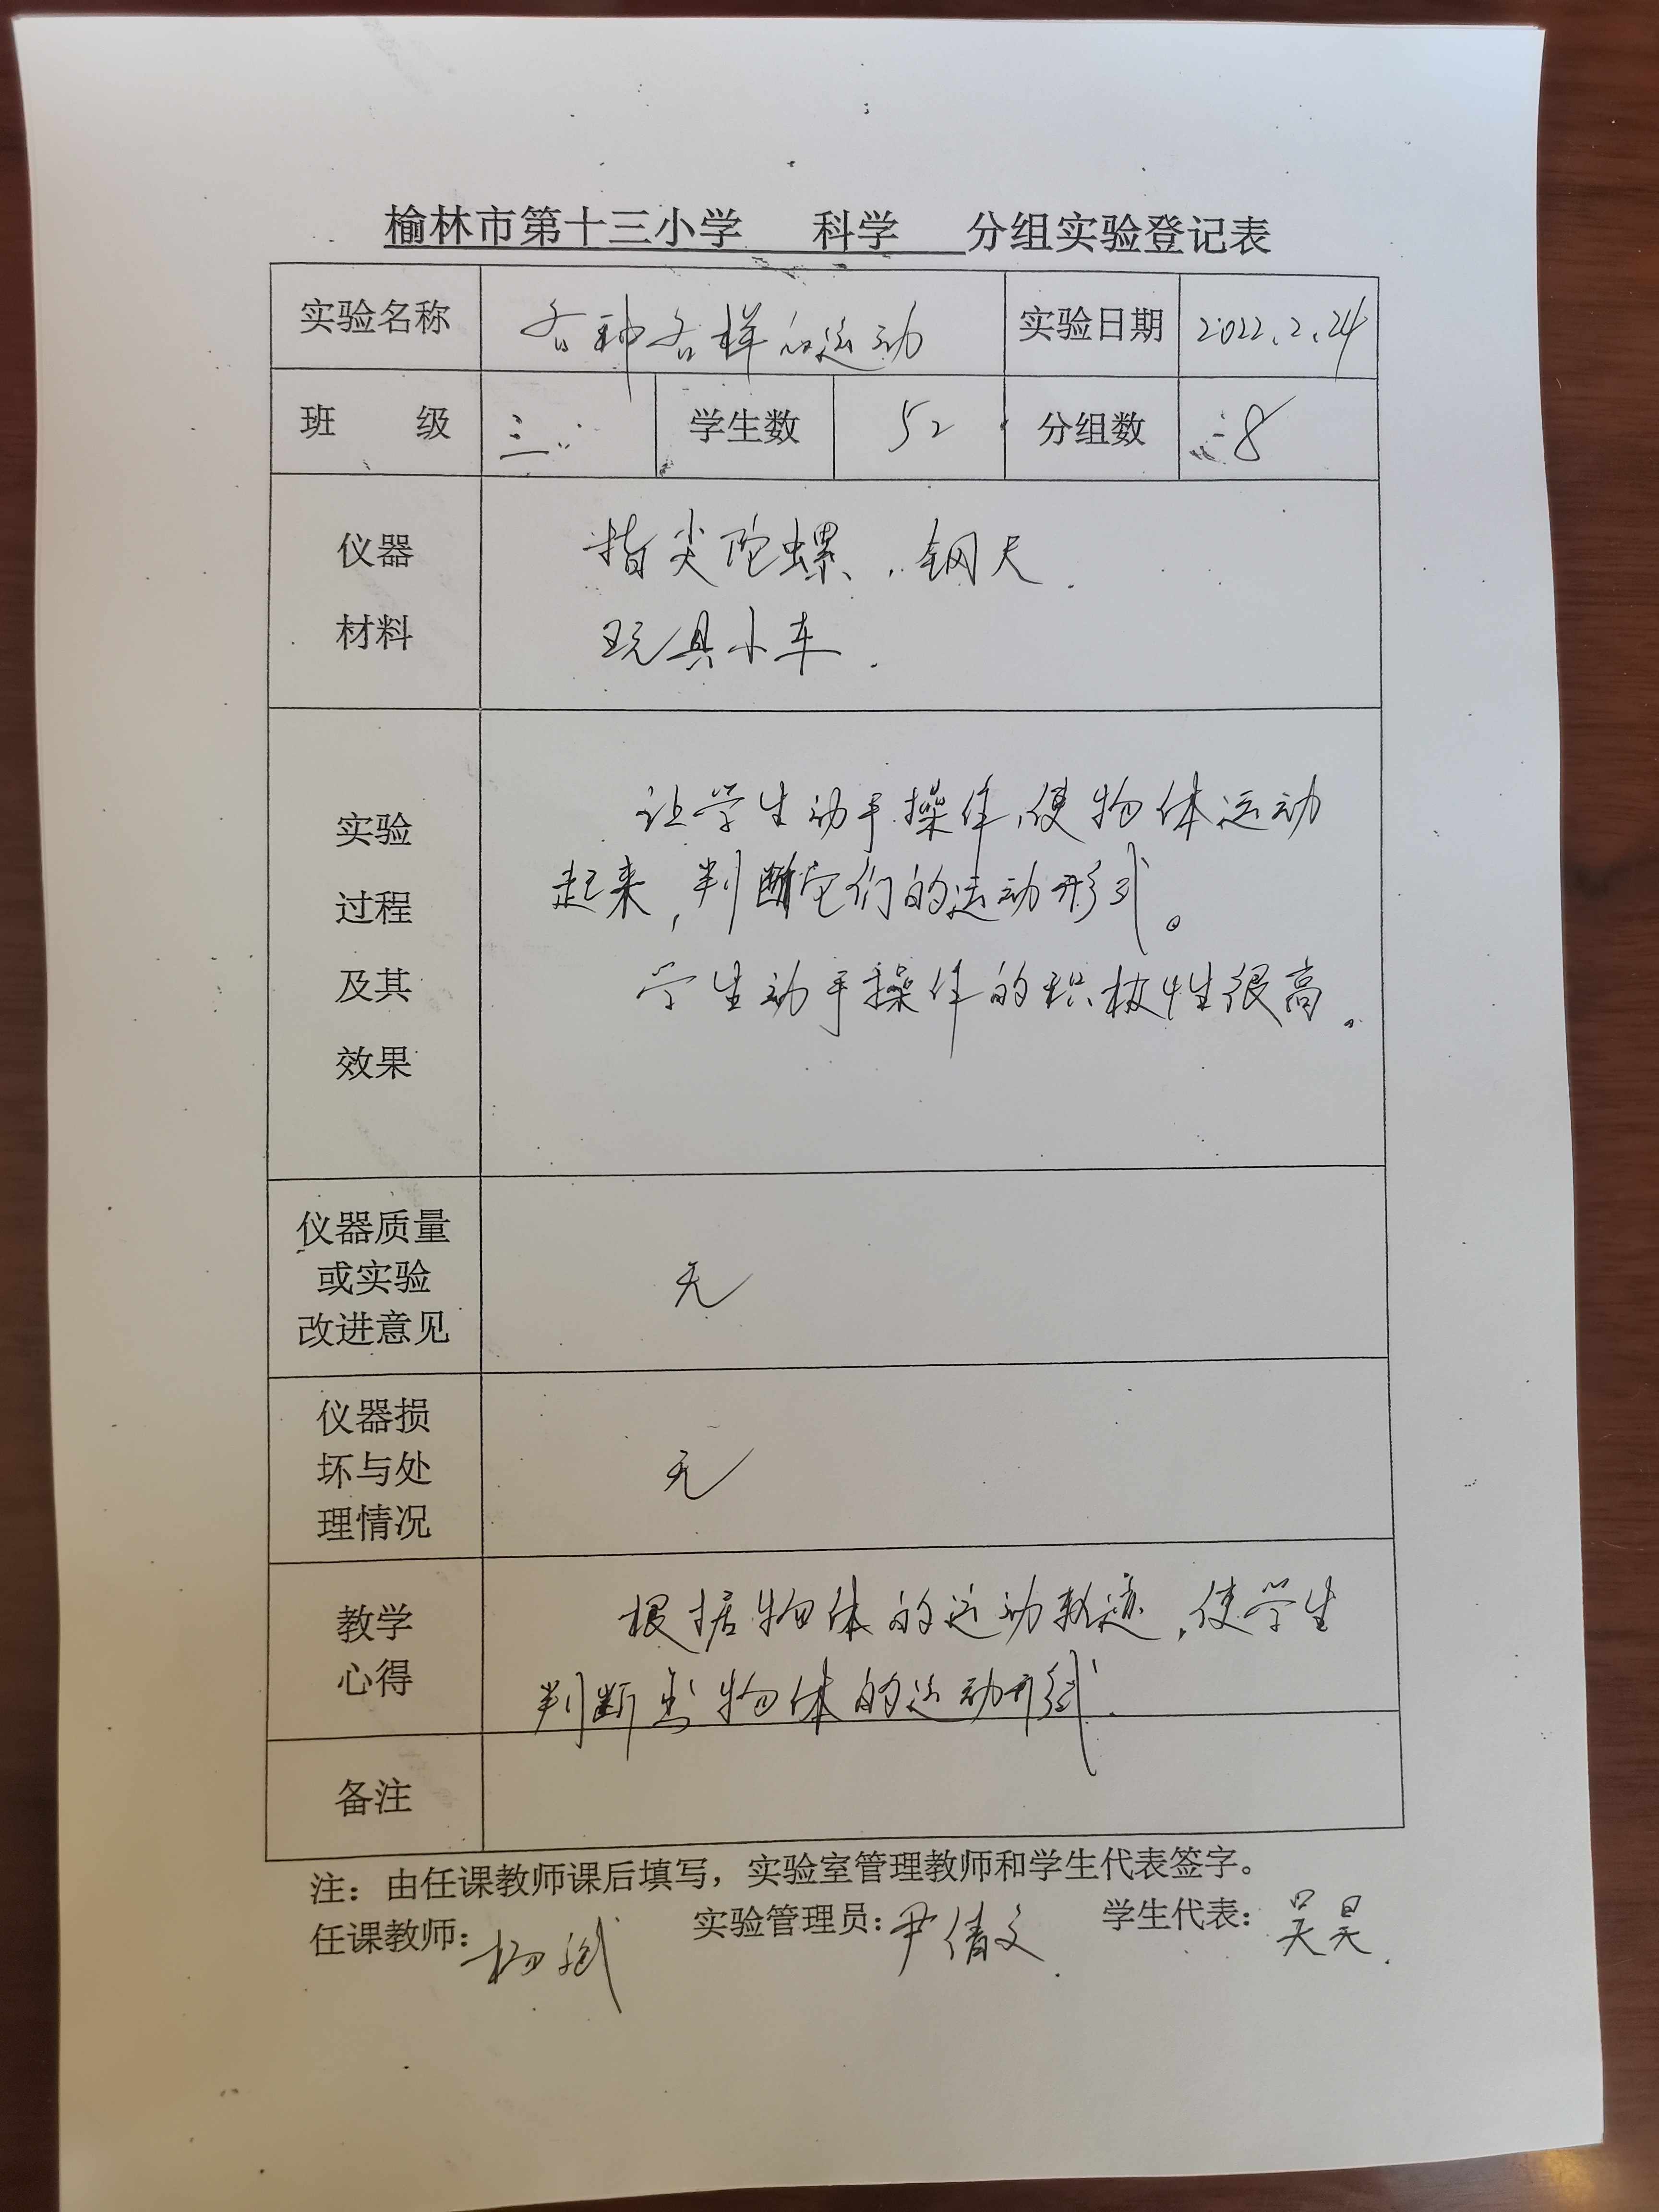 榆林市第十三小学 科学 分组实验登记表
实验名称 各种各样的运动 实验日期 2022.2.24
班 级 三 学生数 52 分组数 8
仪器
材料
指尖陀螺、钢尺.
玩具小车.
实验
过程
及其
效果
让学生动手操作,使物体运动
起来,判断它们的运动形式。
学生动手操作的积极性很高。
仪器质量
或实验
改进意见
无
仪器损
坏与处
理情况
无
教学
心得
根据物体的运动轨迹,使学生
判断出物体的运动形式.
备注
注：由任课教师课后填写，实验室管理教师和学生代表签字。
任课教师: 杨斌 实验管理员: 尹倩文. 学生代表: 吴昊.